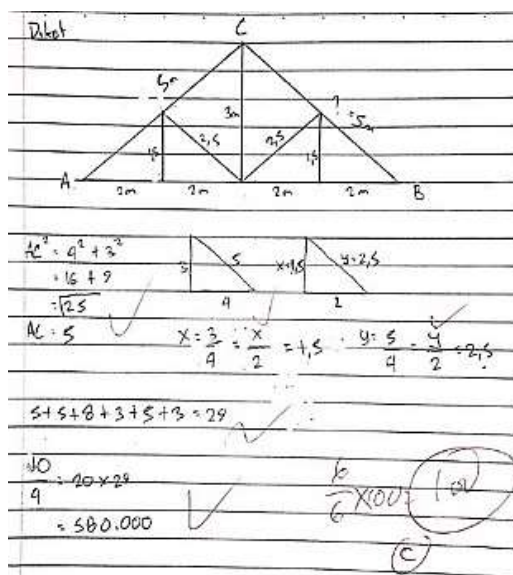 Diket
C
5m
3m
? = 5m
1,5
2,5
2,5
1,5
A
2m
2m
2m
2m
B
AC² = 4² + 3²
= 16 + 9
= √25
AC = 5
3
5
4
x=1,5
y=2,5
2
x = 3/4 = x/2 = 1,5
y = 5/4 = y/2 = 2,5
5+5+8+3+5+3 = 29
= 20 x 29
= 580.000
6/6 x100 = 100
C